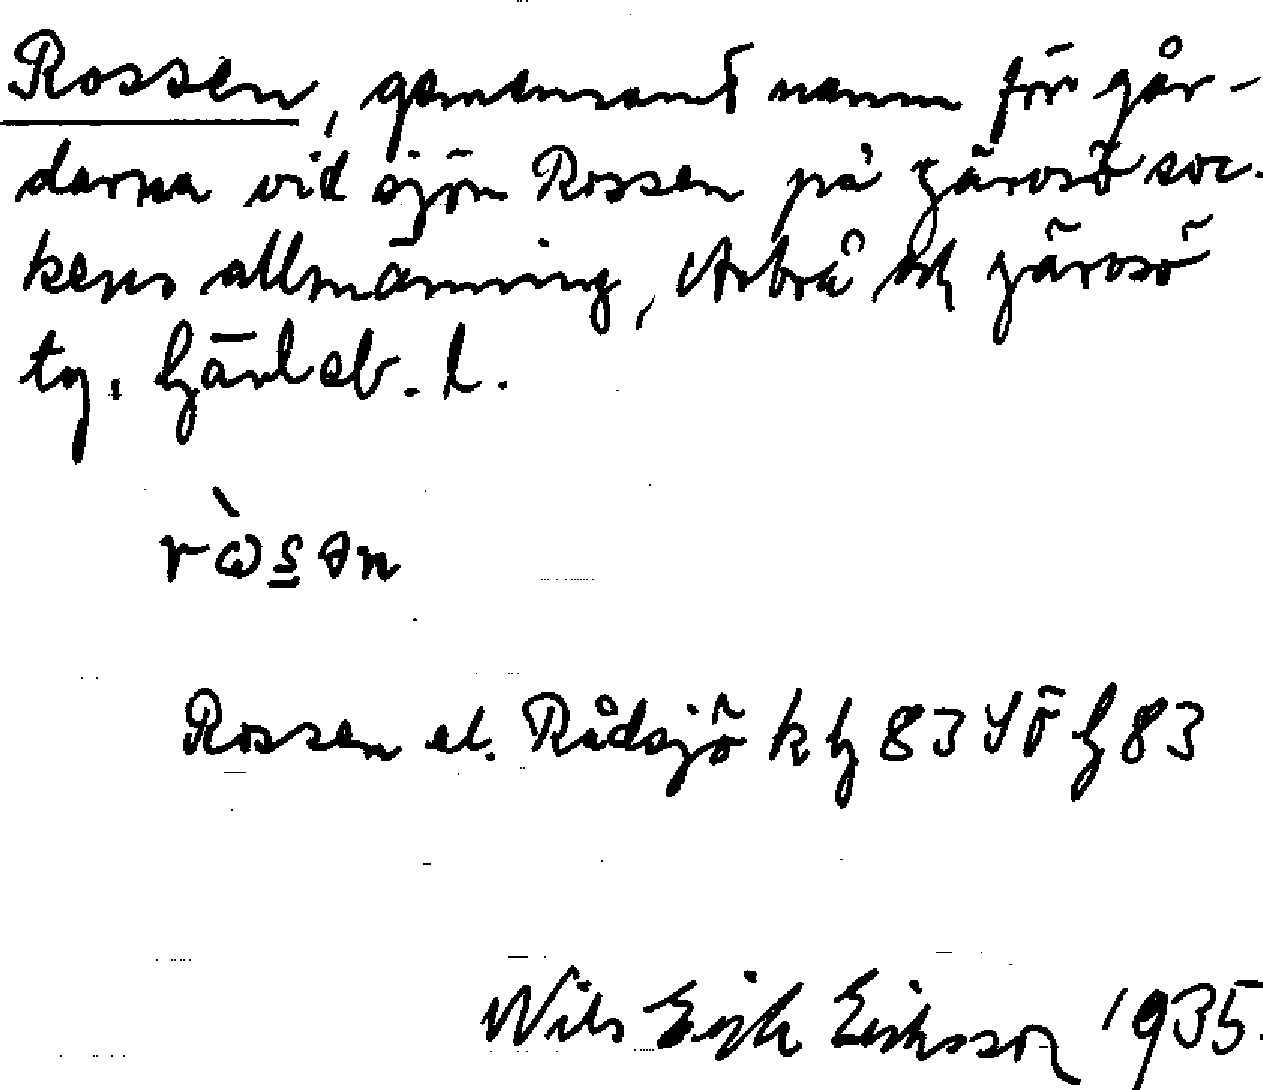 Rossen, gemensamt namn för går-
darna vid sjön Rossen på Järvsö soc-
kens allmänning, Arbrå och Järvsö
tg. Gävleb. l.
rὼs̲ən
Rossen el. Rådsjö k 83 83
Nils Erik Eriksson 1935.